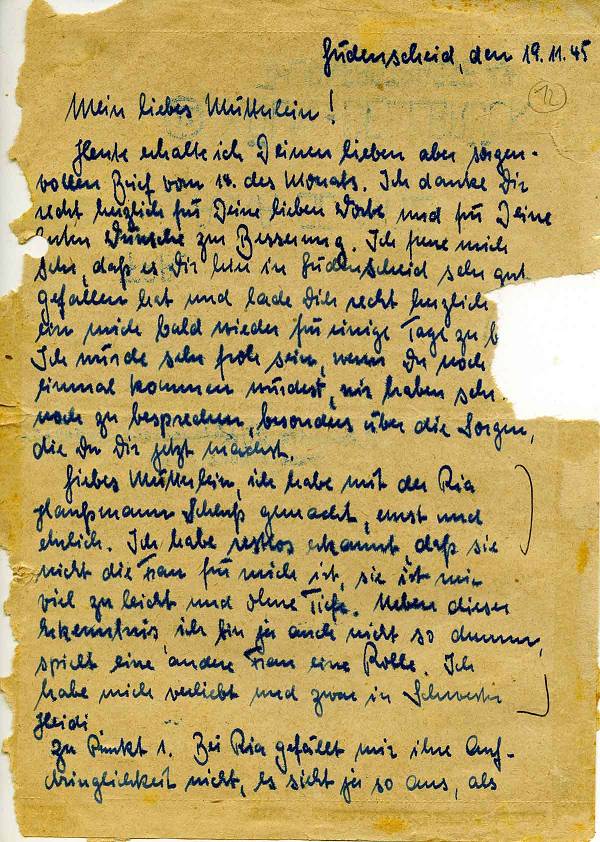 Lüdenscheid, den 19.11.45
12
Mein liebes Mütterlein!
Heute erhalte ich Deinen lieben aber sorgen-
vollen Brief vom 14. des Monats. Ich danke Dir
recht herzlich für Deine lieben Worte und für Deine
guten Wünsche zur Besserung. Ich freue mich
sehr, daß es Dir hier in Lüdenscheid sehr gut
gefallen hat und lade Dich recht herzlich
ein mich bald wieder für einige Tage zu b
Ich würde sehr froh sein, wenn Du noch
einmal kommen würdest, wir haben sehr
noch zu besprechen, besonders über die Sorgen,
die Du Dir jetzt machst.
Liebes Mütterlein, ich habe mit der Ria
Schluß gemacht, ernst und
ehrlich. Ich habe restlos erkannt, daß sie
nicht die Frau für mich ist, sie ist mir
viel zu leicht und ohne Tiefe. Neben dieser
Erkenntnis ich bin ja auch nicht so dumm,
spielt eine andere Frau eine Rolle. Ich
habe mich verliebt und zwar in Schwester
Heidi
zu Punkt 1. Bei Ria gefällt mir ihre Auf-
dringlichkeit nicht, es sieht ja so aus, als